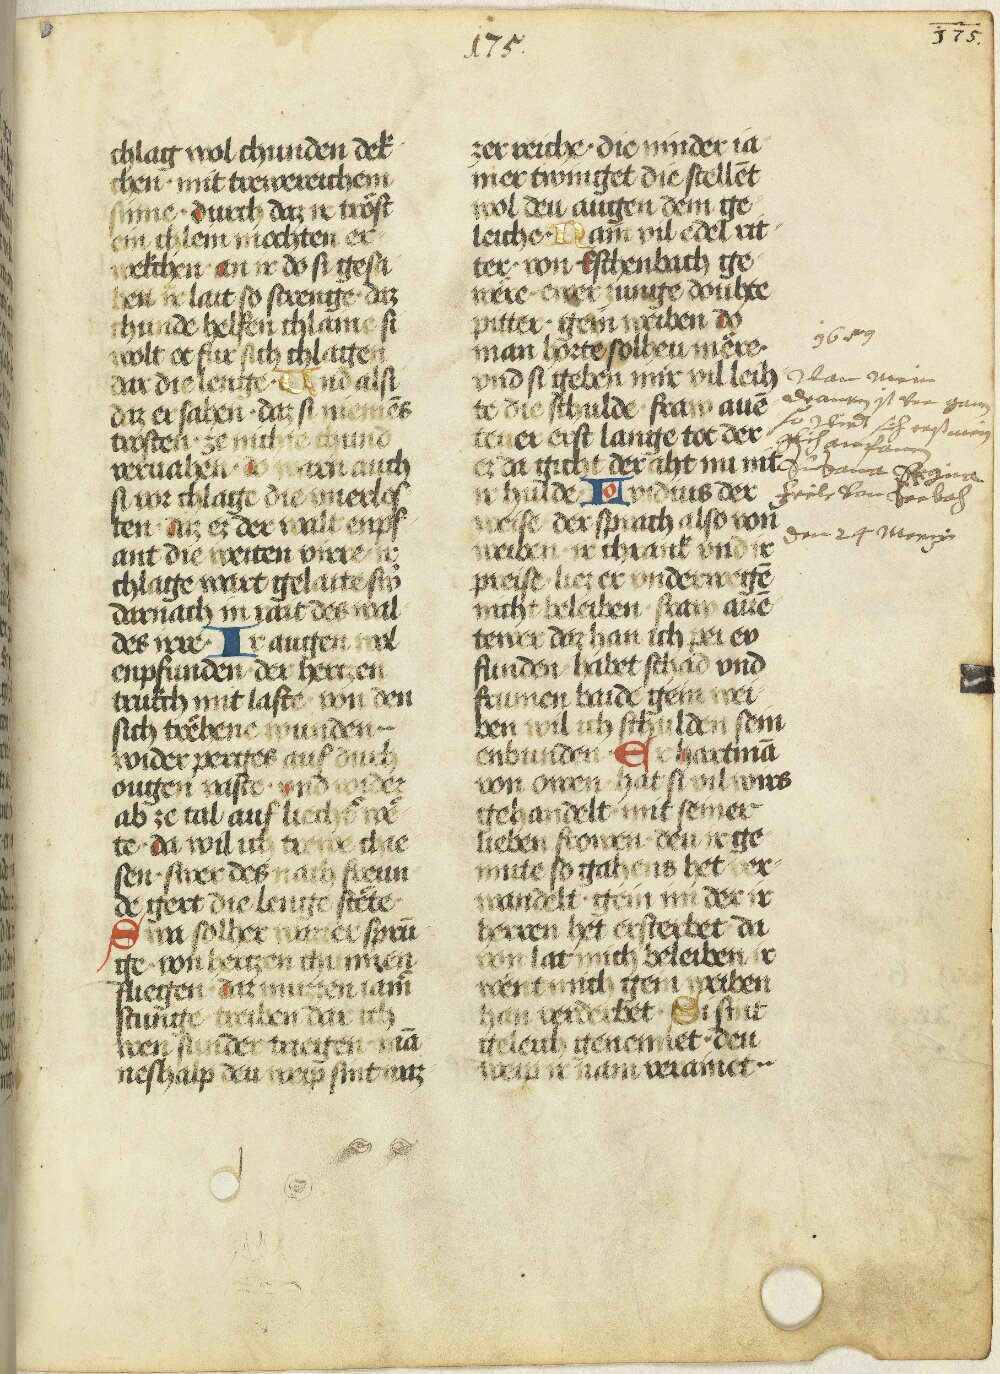 175.
175.
chlag wol chunden dek
chen · mit trewereichem
stime · durch daz ir tröst
ein chlein mochten er
wekchen · an ir do si gesa
hen ir lait so strenge · daz
chunde helfen chlaine si
wolt et fur sich chlagen
dar die lenge · Und alsi
daz ersahen · daz si niemēs
trosten · ze nihte chund
vervahen · do waren auch
si vor chlage die unerlos
ten · daz ez der walt enpf
ant die weiten virre · ir
chlage wart gelaite swō
darnach in rait des wal
des irre · Ir augen wol
enpfunden · der hertzen
trukch mit laste · von den
sich trëhene wunden
wider perges auf durch
ougen vaste · und wider
ab ze tal auf liecht wē
te · da wil ich trewe chie
sen · swer des nach freun
de gert die lenge stëte ·
Swa solher wazzer sprū
ge · von hertzen chunnen
fliegen · daz muzzen iam
stunge · treiben dar ich
wen sunder triegen · mā
neshalp deu weip sint unz
zer reiche · die minder ia
mer twinget die stellet
wol deu augen dem ge
leiche · Nam vil edel rit
ter · von Eschenbach ge
wëre · ewer zunge douhte
pitter · gein weiben do
man horte solheu mëre ·
vnd si gehen mir vil leih
te die schulde · fraw auē
teuer erst lange tot der
er da giht der aht nu niht
ir hulde · Ovidius der
weise · der sprach also von
weiben · ir chrank vnd ir
preise · liez er vnderwegē
niht beleiben · fraw auē
tewer daz han ich pei ev
funden · habet schad vnd
frumen baide gein wei
ben wil ich schulden sein
enbunden · Er hartmā
von owen · hat si vil wirs
gehandelt · mit seiner
lieben frowen · den ir ge
mute so gahens het ver
wandelt · gein im der ir
herren het ersterbet · da
von lat mich beleiben ir
went mich gein weiben
han verderbet · Si sint
geleich genennet · deu
weip ir nam veramet
Susana Regina
den 24